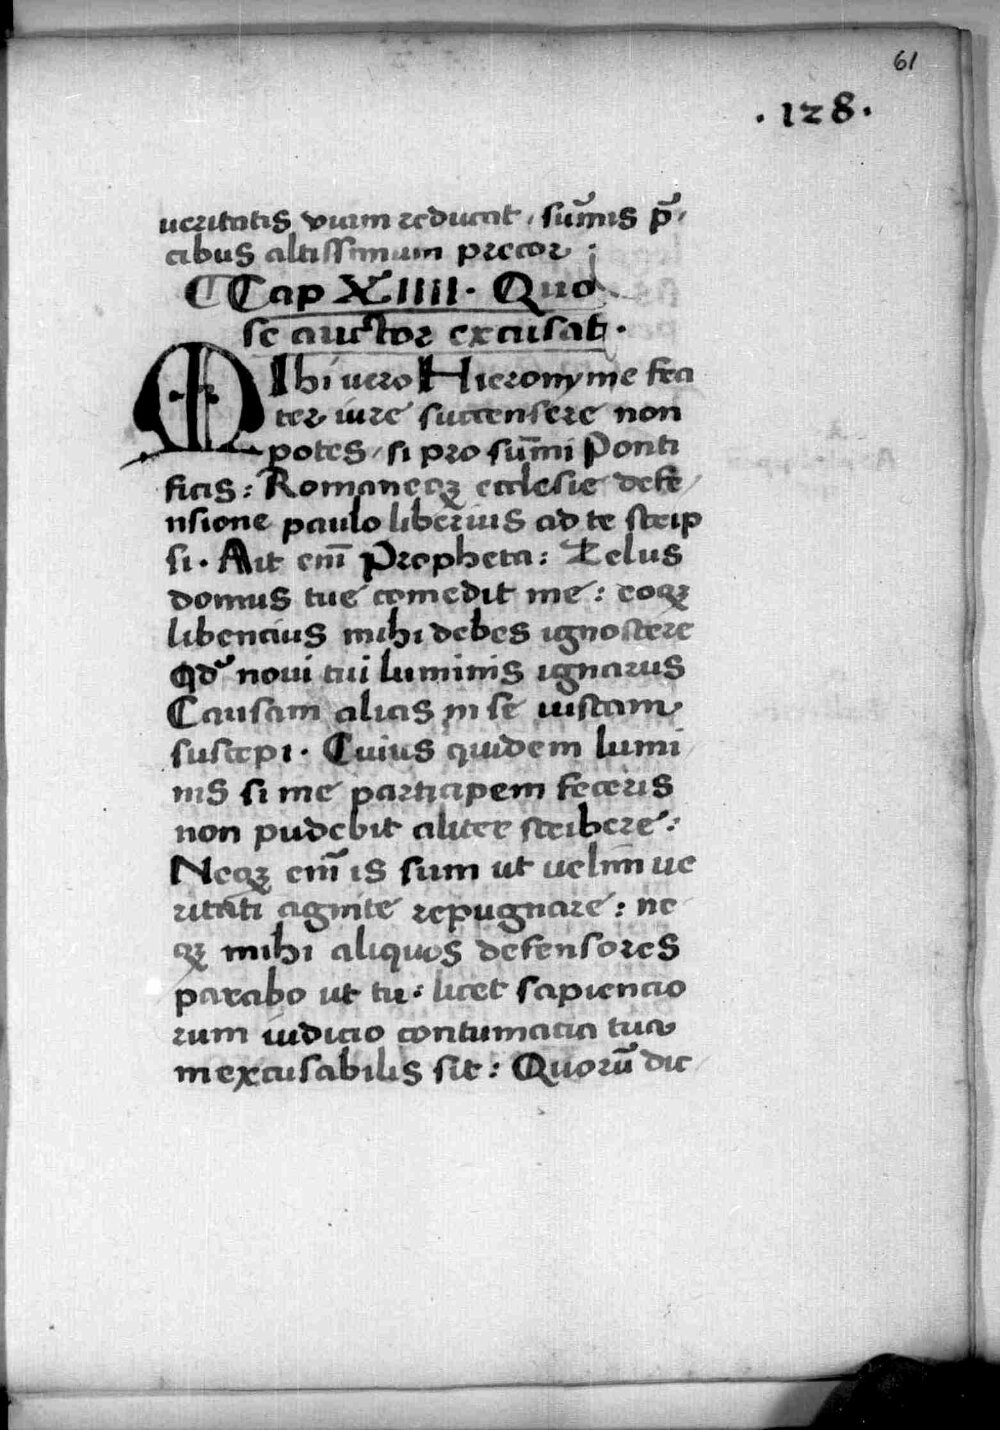 61
· 128 ·
ueritatis viam reducat, sum̃is p̃,
cibus altissimum precor ;
Cap XIIII. Quo
se auctor excusat.
MIhi uero Hieronyme fra
ter iure succensere non
potes, si pro sum̃i Ponti
ficis: Romaneqꝫ ecclesie defe,
nsione paulo liberius ad te scrip
si. Ait em̃ Propheta: Zelus
domus tue comedit me: eoqꝫ
libencius mihi debes ignoscere
Qd̃ noui tui luminis ignarus
Causam alias in se iustam
suscepi. Cuius quidem lumi,
nis si me participem feceris
non pudebit aliter scribere:
Neqꝫ em̃ is sum ut uelim ue
ritati agnite repugnare: ne
qꝫ mihi aliquos defensores
parabo ut tu: licet sapiencio
rum iudicio contumacia tua
inexcusabilis sit: Quorũ dic,